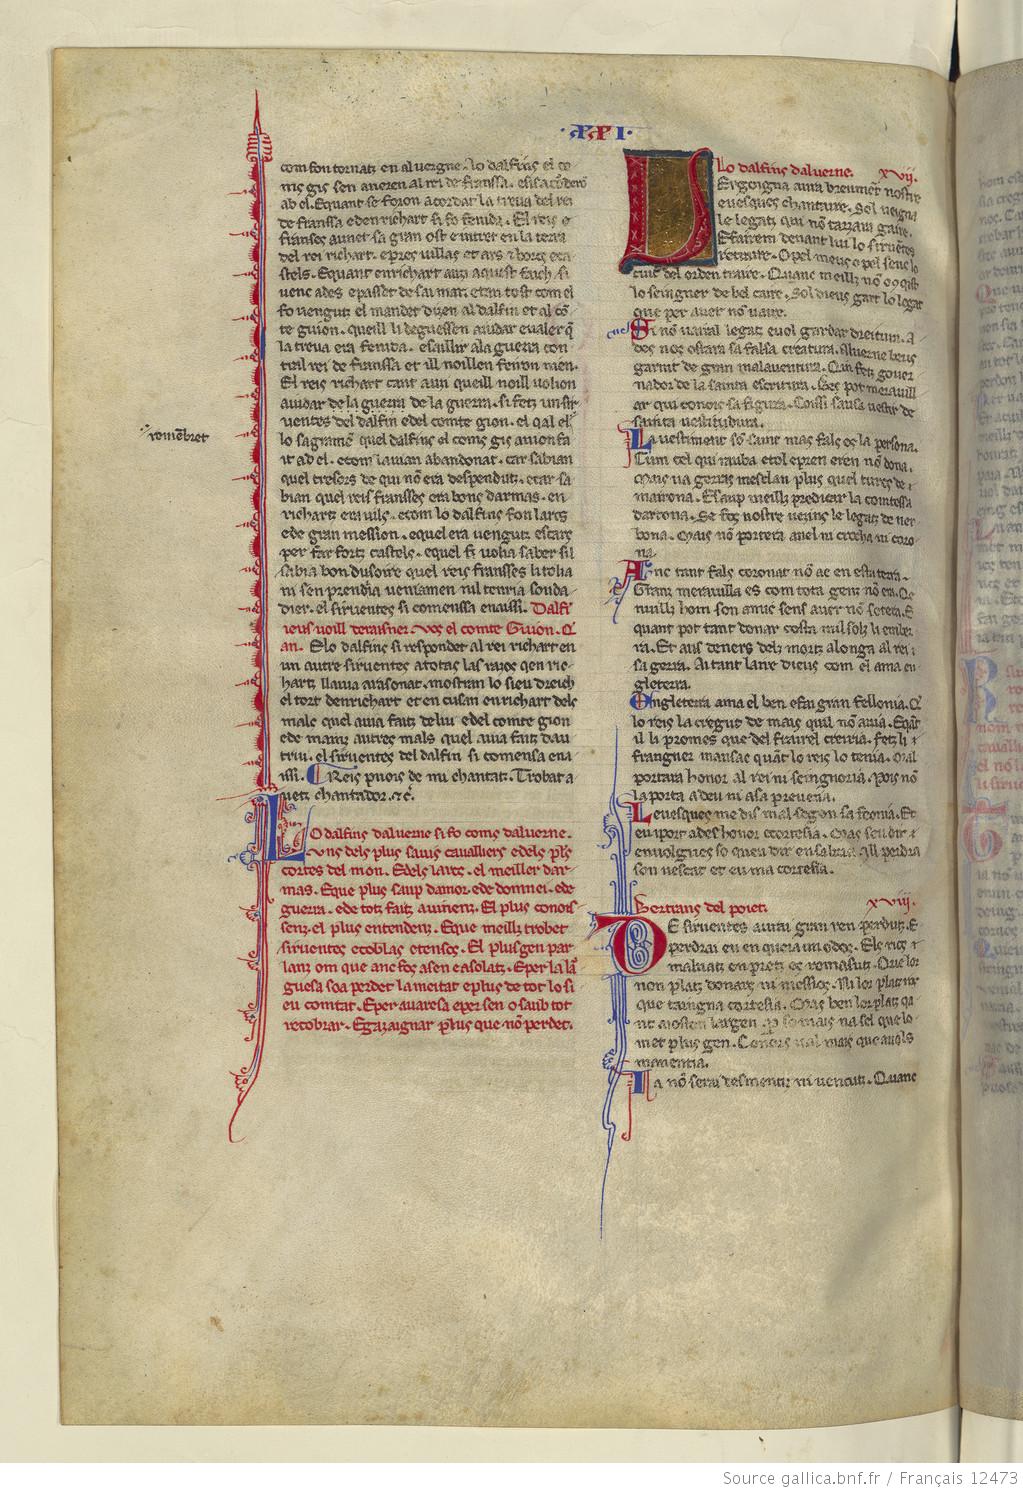 com son tornatz en aluergne. lo dalfins el co
ms gis sen aneren al rei de franssa. e si sacorderō
ab el. Equant se foron acordat la treua del rei
de franssa e den richart si fo fenida. El reis de
franses aunet sa gran ost e intret en la terra
del rei richart. e pres uillas et ars e borcs e ca
stels. Equant en richart aui aquest faich. si
uenc ades e passet de sai mar. e tan tost com el
fo uengutz el mandet dizen al dalfin et al cō
te guion. queill li deguessen aiudar e ualer q̄
la treua era fenida. e saillir ala guerra con
tral rei de franssa et ill noillen feiron nien.
El reis richart cant aui queill noill uolion
aiudar de la guerra de la guerra. si fetz un sir
uentes del dalfin e del comte gion. el qal el
romēbret
lo sagramē quel dalfins el coms gis auion fa
it ad el. e com lauian abandonat. car sabian
quel tresors de qui nō era despendutz. e car sa
bian quel reis franses era bons darmas. en
richartz era uils. e com lo dalfins fon larcs
e de gran mession. e quel era uengutz escars
per far fortz castels. e quel si uolia saber sil
sabia bon dusoire quel reis franses li tolia
ni sen prendia ueniamen nil tenria souda
dier. el siruentes si comenssa enaissi. Dalfi
ieus uoill deraisner. Vos el comte Guion. Q̄
an. E lo dalfins si respondet al rei richart en
un autre siruentes a totas las raizos qen ric
hartz llauia arasonat. mostran lo sieu dreich
el tort denrichart et encusan en richart dels
mals quel auia faitz de lui e del comte gion
e de mainz autres mals quel auia faitz dau
trui. el siruentes del dalfin si comensa ena
issi. Reis puois de mi chantatz. Trobat a
uetz chantador. &c̄.
LO dalfins daluerne si fo coms daluerne.
Vns dels plus sauis caualliers e dels pl's
cortes del mon. Edels larcs. el meiller dar
mas. Eque plus saup damor e de domnei. e de
guerra. e de totz faitz auinenz. El plus conois
senz. el plus entendenz. Eque meillz trobet
siruentes e coblas e tensos. El plus gen par
lanz om que anc fos a sen e a solatz. E per la lar
guesa soa perdet la meitat e plus de tot lo si
eu comtat. E per auaresa e per sen o saub tot
recobrar. E gazaignar plus que nō perdet.
·XXVI·
Lo dalfins daluerne. xvij.
VErgoigna aura breumēt nostre
euesques chantaire. Sol ueigna
le legatz qui nō tarzara gaire.
E farem denant lui lo siruētes
retraire. O pel mieus o pel seus lo
cuit del orden traire. Quanc meillz nō conqist
lo seingner de bel caire. Sol dieus gart lo legat
que per auer nō uaire.
Si nō uarial legatz e uol gardar dreitura. A
des nos ostara sa falsa creatura. Aluerne beus
garnit de gran malauentura. Can fetz gouer
nador de la sainta escritura. Bes pot merauill
ar qui conois sa figura. Coissi sausa uestir de
sainta uestidura.
La uestimenz sō saint mas fals es la persona.
Cum cel qui rauba e tol e pren e ren nō dona.
Mais ua gerras mesclan plus quel turcs de
mairona. E saup meillz predicar la comtessa
dartona. Se fos nostre ueans le legatz de ner
bona. Mais nō portera anel ni crocha ni coro
na.
Anc tant fals coronatz nō ac en esta terra.
Grans merauilla es com tota gen nō era. Qe
nuillz hom son amic sens auer nō soterra. E
quant pot tant donar costa mil solz li enber
ra. Et ans deners delz mortz alonga al rei
sa gerra. Aitant lame dieus com el ama en
gleterra.
Engleterra ama el ben e fai gran fellonia. Q̄
lo reis la cregut de mais quil nō auia. Eqār
il li promes que del fraire creiria. Fetz li
franguer mausac quāt lo reis lo tenia. Mal
portara honor al rei ni seingnoria. Pois nō
la porta a deu ni a sa preueiria.
Leuesques me dis mal segon sa feonia. Et
eu iport ades honor e cortesia. Mas seu dir
en uolgues so queu dir en sabria. Ill perdria
son uescat et eu ma cortesia.
Bertrans del poiet. xviij.
DE siruentes aurai gran ren perdutz. E
perdrai en enquera un o dos. Els rics
maluatz en pretz es romasutz. Que lor
non platz donars ni messios. Ni lor platz ine
que taingna cortesia. Mas ben lor platz qā
nt aiosten largen. Per so mais na sel que lo
met plus gen. Conors ual mais que auols
manentia.
Ia nō serai desmentitz ni uencutz. Quanc
Source gallica.bnf.fr / Français 12473